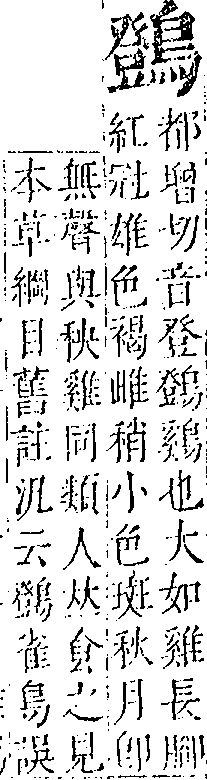 鷄
都增切音登鷄鷄也大如雞長脚
紅冠雄色褐雌稍小色斑秋月即
無聲與秧雞同類人炊食之見
本草綱目舊註汎云鷄雀鳥誤